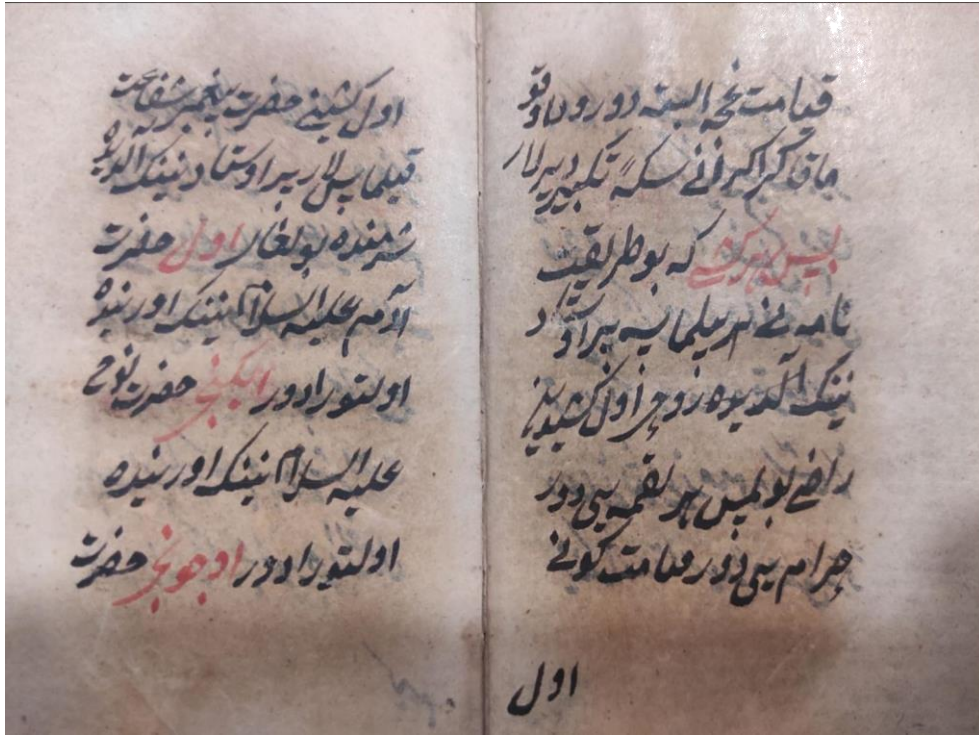 قیامت غچه البته دورور اوقو
ماقا کر اکر انی نسکه تکبیر دیرلار
پس هر کشی که بو طریقیت
نامه نی بیلماسه بر اوستاد
نینک آلدیده روحی اول کشیدین
راضی بولمس هر لقمه یی دور
حرام یی دور قیامت کونی
اول
اول کشینی حضرت پیغمبر شفاعت
قیلماس لار بر اوستادنینک آلدیده
شرمنده بولغای اول حضرت
آدم علیه السلام نینک اورنیده
اولتورادور ایکنجی حضرت نوح
علیه السلام نینک اورنیده
اولتورادور اوچونجی حضرت